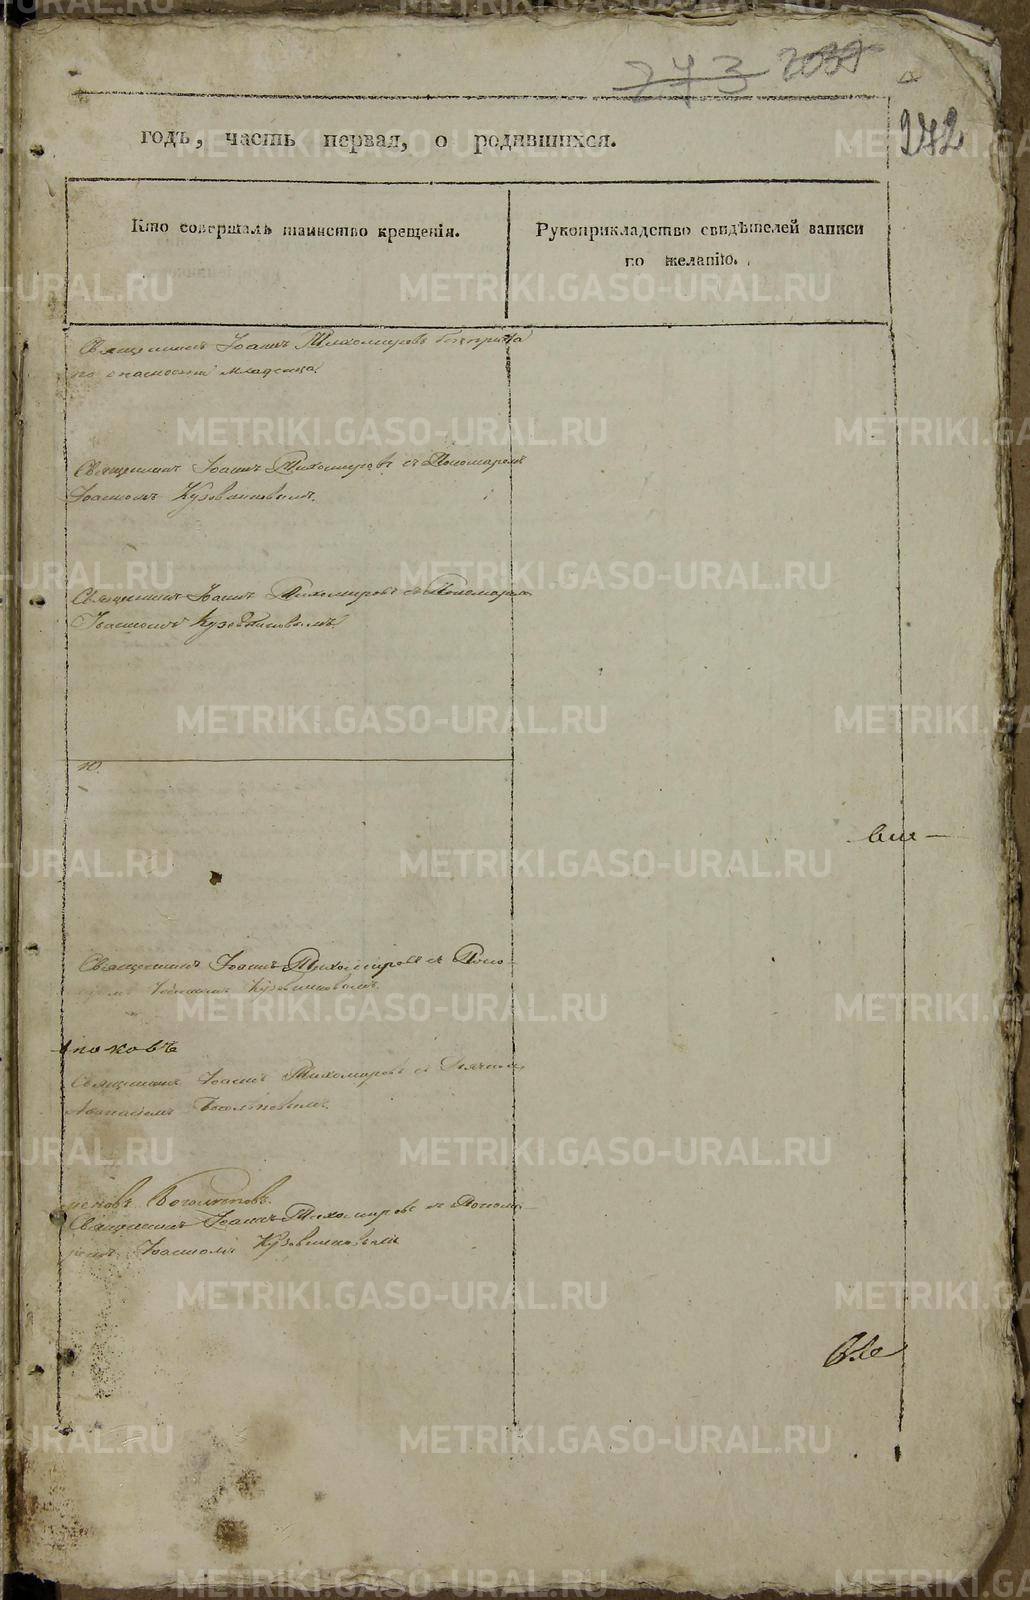 273 2039
272
годъ, часть первая, о родившихся.
Кто совершалъ таинство крещенія.
Рукоприкладство свидѣтелей записи
по желанію.
Священникъ Іоаннъ Тихомировъ
по опасности младенца
Священникъ Іоаннъ Тихомировъ съ Пономаремъ
Іоанномъ Кузовниковымъ.
Священникъ Іоаннъ Тихомировъ съ Пономаремъ
Іоанномъ Кузовниковымъ.
ю.
Священникъ Іоаннъ Тихомировъ съ Поно-
Іоанномъ Кузовниковымъ.
Священникъ Іоаннъ Тихомировъ съ Дьячкомъ
Аѳанасіемъ
Боголѣповъ.
Священникъ Іоаннъ Тихомировъ съ Понома-
ремъ Іоанномъ Кузовниковымъ
METRIKI.GASO-URAL.RU